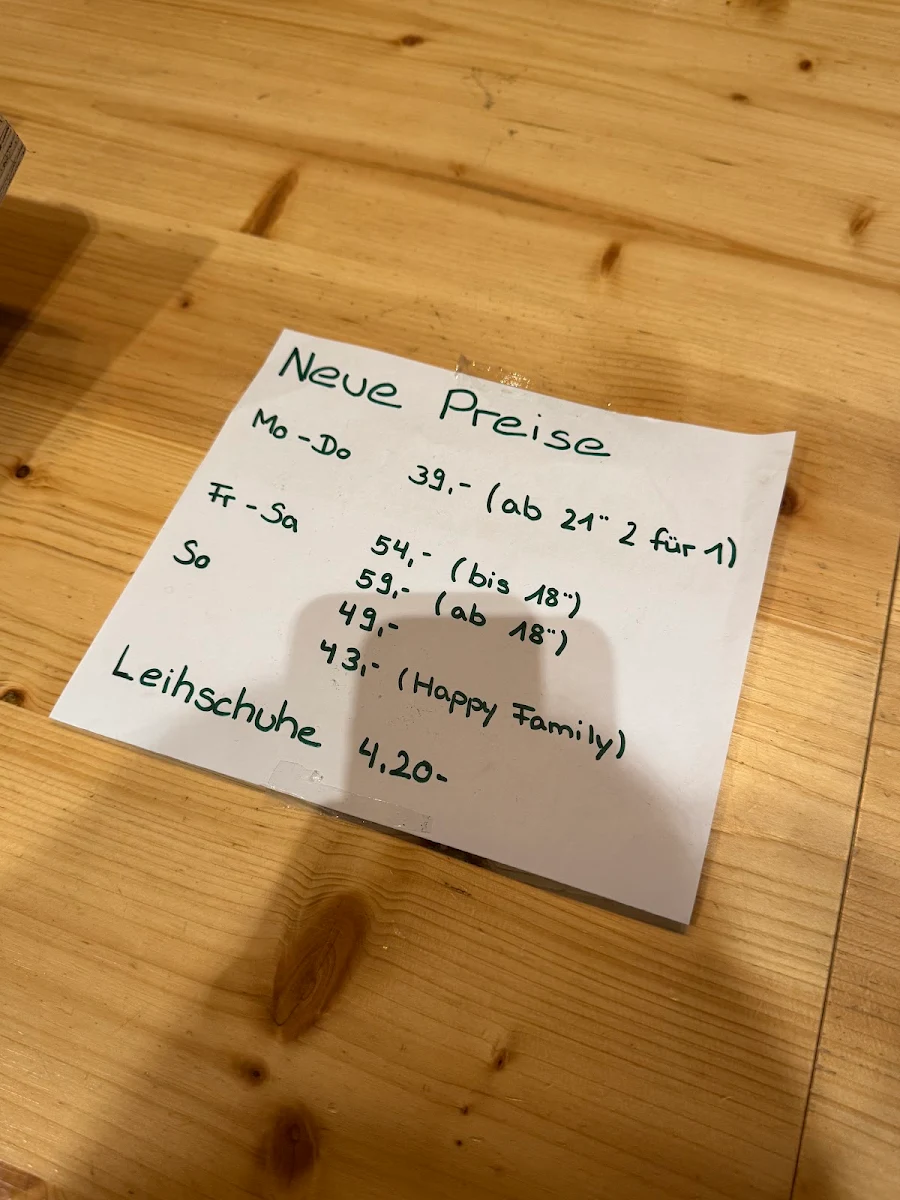 Neue Preise
Mo-Do 39,- (ab 21⁰⁰ 2 für 1)
Fr-Sa 54,- (bis 18⁰⁰)
59,- (ab 18⁰⁰)
So 49,-
43,- (Happy Family)
Leihschuhe 4,20-